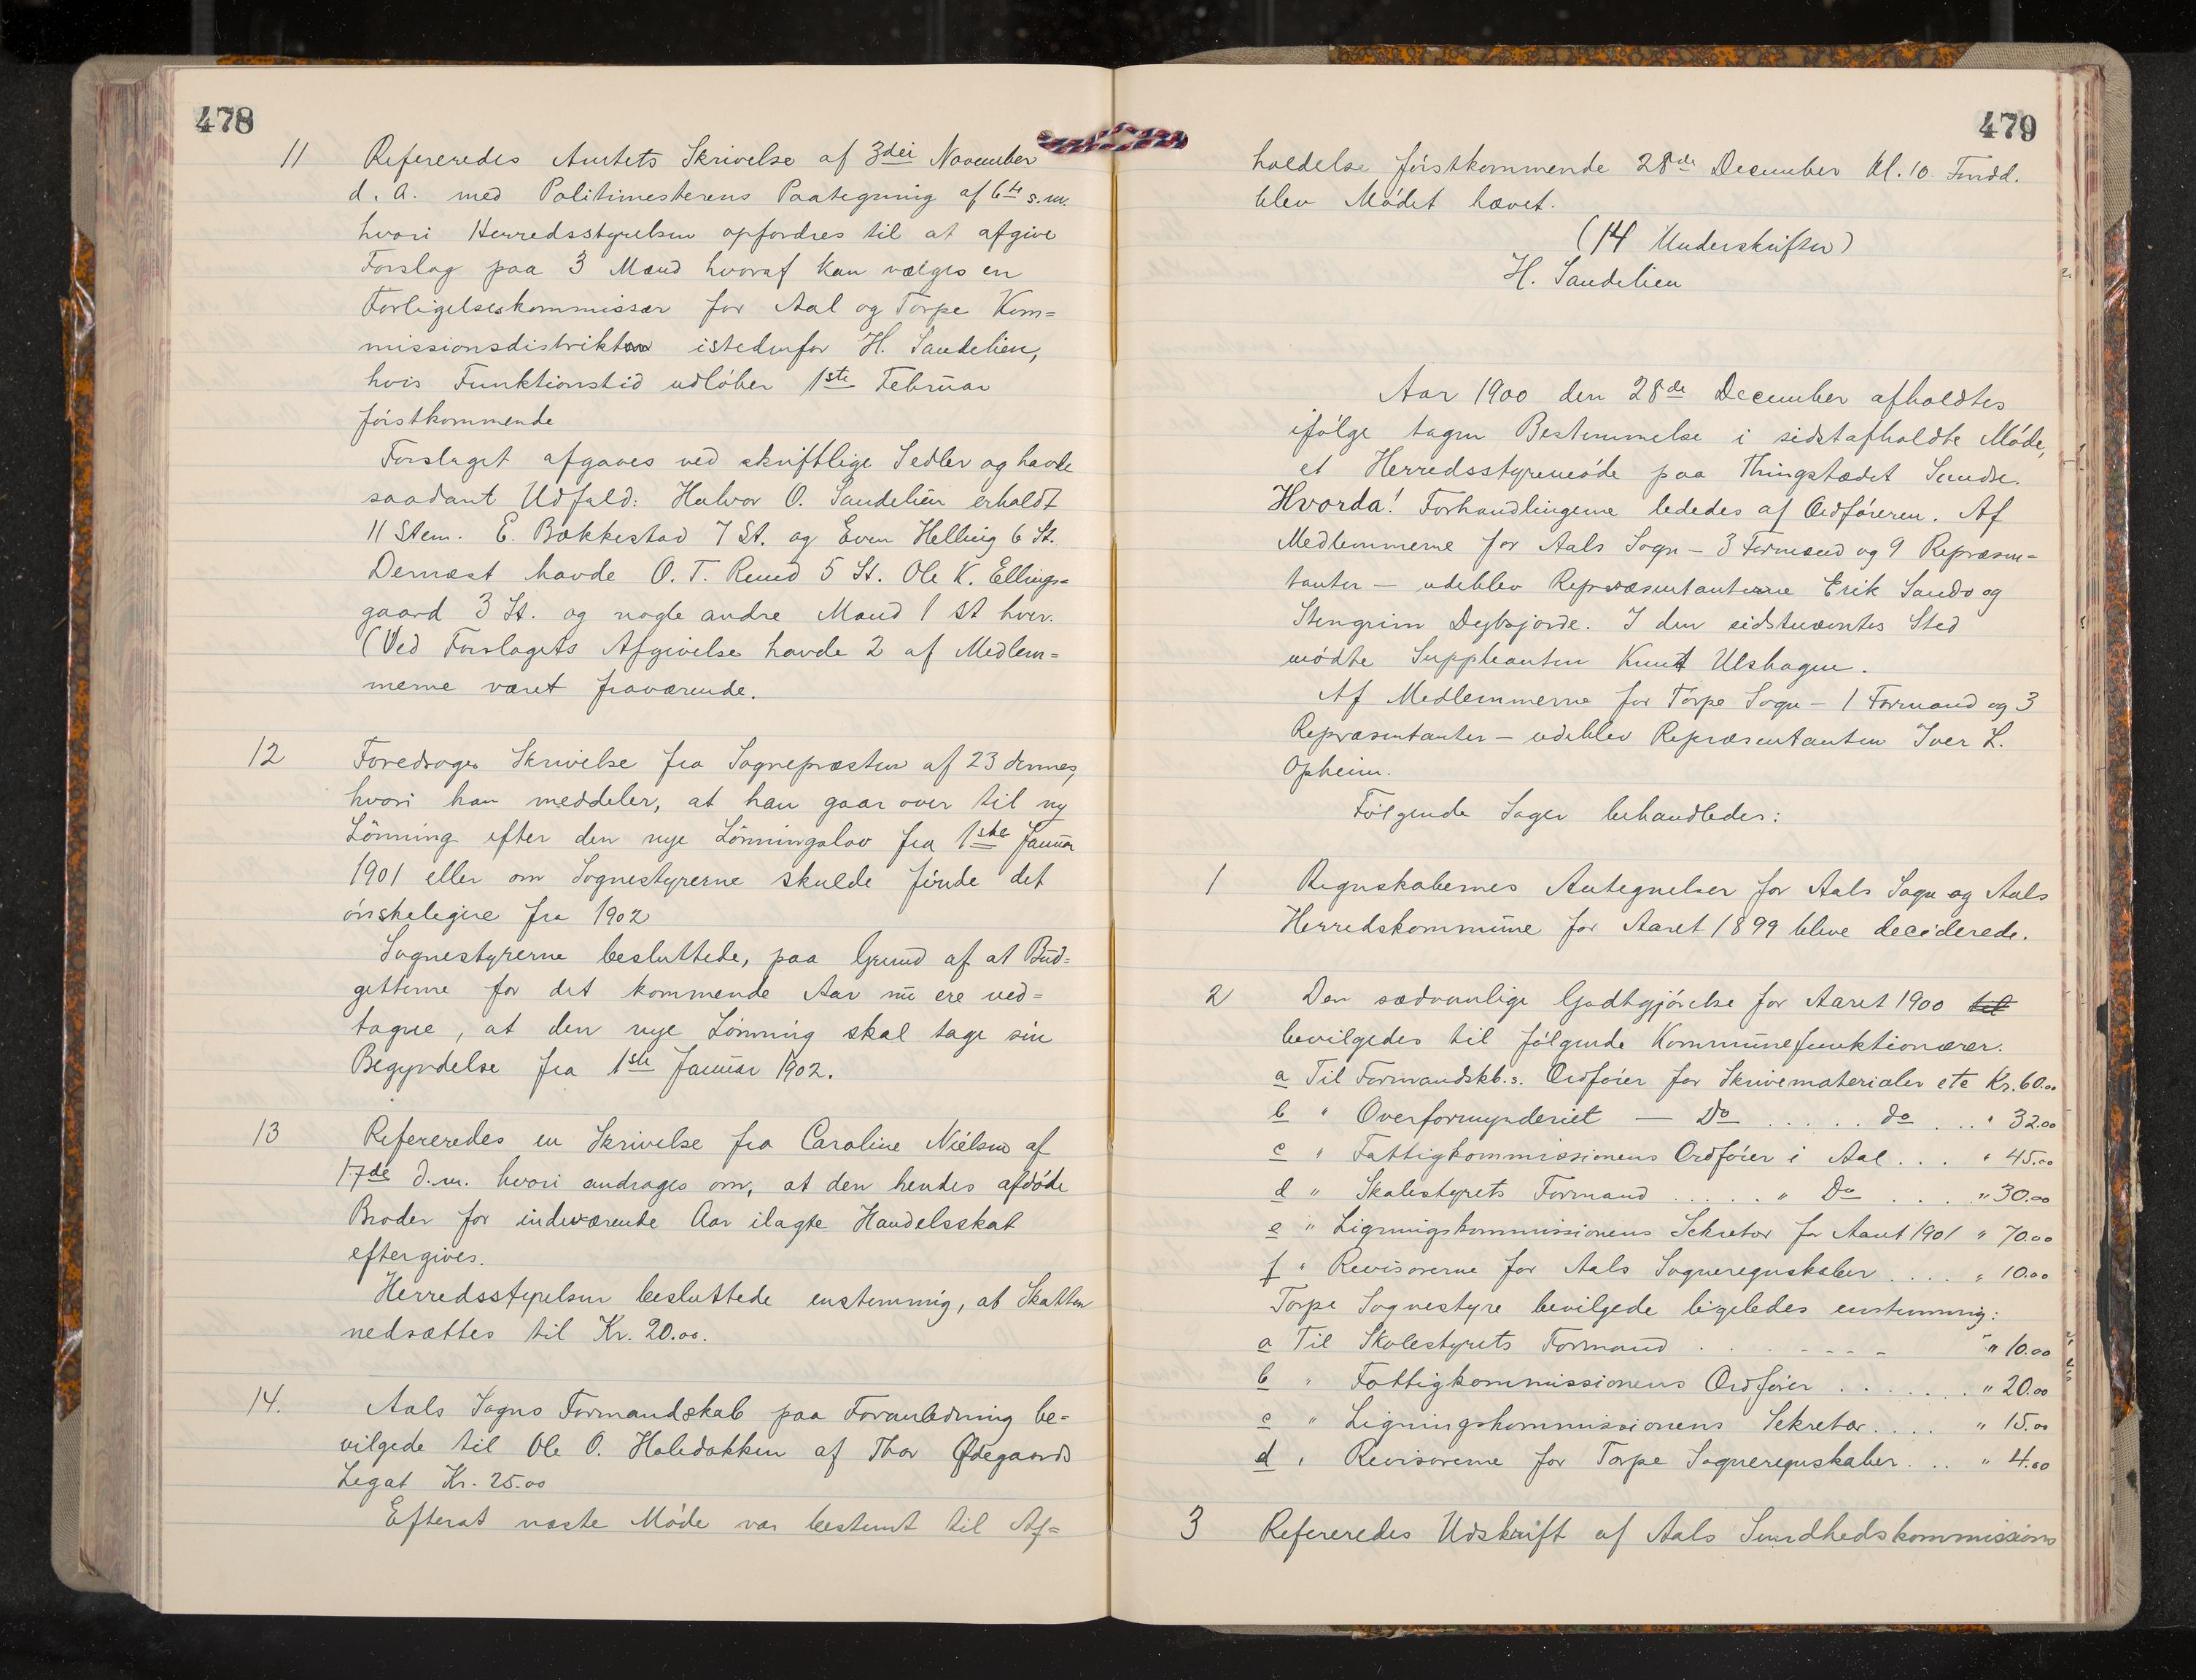 478
11 Refereredes Amtets Skrivelse af 3dei November
d. A. med Politimesterens Paategning af 6te s.m.
hvori Herredsstyrelsen opfordres til at afgive
Forslag paa 3 Mænd hvoraf kan vælges en
Forligelseskommissær for Aal og Torpe Kom=
missionsdistrikter istedenfor H. Sandelien,
hvis Funktionstid udløber 1ste Februar
førstkommende
Forslaget afgaves ved skriftlige Sedler og havde
saadant Udfald: Halvor O. Sandelien erholdt
11 Stem. E. Bækkestad 7 St. og Even Helling 6 St.
Dernæst havde O. T. Rund 5 St. Ole K. Ellings=
gaard 3 St. og nogle andre Mænd 1 St hver.
(Ved Forslagets Afgivelse havde 2 af Medlem=
merne været fraværende.
12 Foredroges Skrivelse fra Sognepræsten af 23 dennes,
hvori han meddeler, at han gaar over til ny
Lønning efter den nye Lønningslov fra 1ste Januar
1901 eller om Sognestyrerne skulde finde det
ønskeligere fra 1902
Sognestyrerne besluttede, paa Grund af at Bud=
getterne for det kommende Aar nu ere ved=
tagne, at den nye Lønning skal tage sin
Begyndelse fra 1ste Januar 1902.
13 Refereredes en Skrivelse fra Caroline Nielsen af
17de d.m. hvori andrages om, at den hendes afdøde
Broder for indeværende Aar ilagte Handelsskat
eftergives.
Herredsstyrelsen besluttede enstemmig, at Skatten
nedsættes til Kr. 20.00.
14. Aals Sogns Formandskab paa Foranledning be=
vilgede til Ole O. Haledokken af Thor Ødegaards
Legat Kr. 25.00
Efterat næste Møde var bestemt til Af=
479
holdelse førstkommende 28de December Kl. 10 Formd.
blev Mødet hævet.
(14 Underskrifter)
H. Sandelien
Aar 1900 den 28de December afholdtes
ifølge tagen Bestemmelse i sidstafholdte Møde,
et Herredsstyremøde paa Thingstædet Sundre.
Hvorda! Forhandlingerne lededes af Ordføreren. Af
Medlemmerne for Aals Sogn - 3 Formænd og 9 Repræsen=
tanter - udeblev Repræsentanterne Erik Sando og
Stengrim Dekjorde. I den sidstnævntes Sted
mødte Suppleanten Knut Ulshagen.
Af Medlemmerne for Torpe Sogn - 1 Formand og 3
Repræsentanter - udeblev Repræsentanten Iver L.
Opheim.
Følgende Sager behandledes:
1 Regnskabernes Antegnelser for Aals Sogn og Aals
Herredskommune for Aaret 1899 bleve deciderede.
2 Den sædvanlige Godtgjørelse for Aaret 1900 til
bevilgedes til følgende Kommunefunktionærer.
a Til Formandskb.s. Ordfører for Skrivematerialer etc Kr. 60.00
b " Overformynderiet — Do ...... do ... " 32.00
c " Fattigkommissionens Ordfører i Aal ... " 45.00
d " Skolestyrets Formand ..... " Do .... " 30.00
e " Ligningskommissionens Sekretær for Aaret 1901 " 70.00
f " Revisorerne for Aals Sogneregnskaber .... " 10.00
Torpe Sognestyre bevilgede ligeledes enstemmig:
a Til Skolestyrets Formand ....... " 10.00
b " Fattigkommissionens Ordfører ....... " 20.00
c " Ligningskommissionens Sekretær .... " 15.00
d " Revisorerne for Torpe Sogneregnskaber ... " 4.00
3 Refereredes Udskrift af Aals Sundhedskommissions